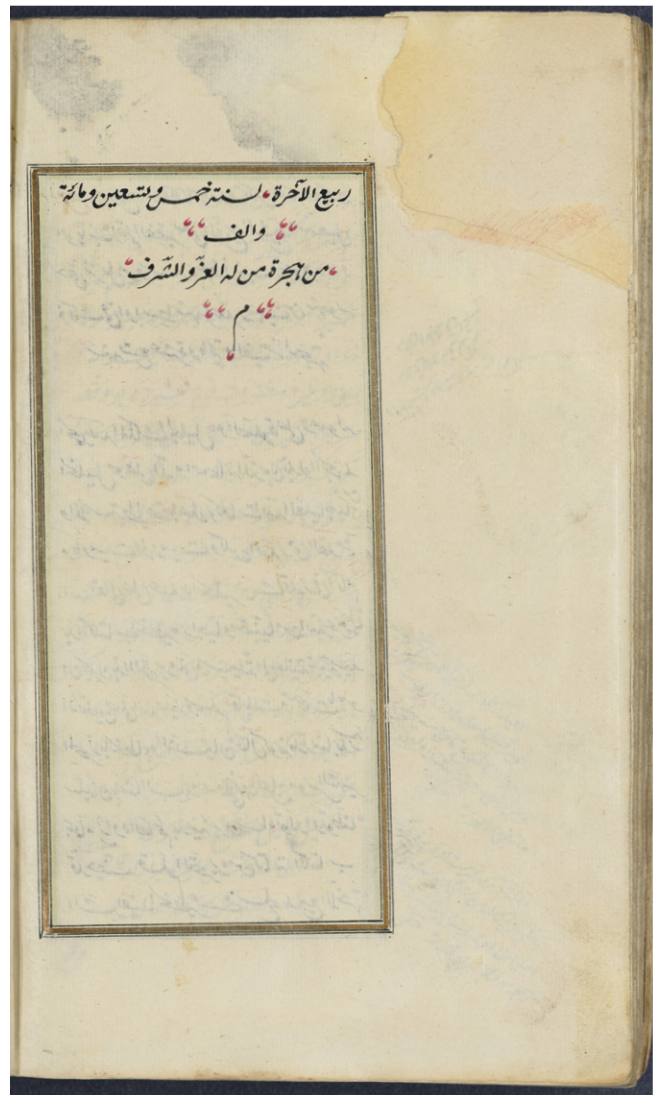 ربيع الآخرة لسنة خمس وتسعين ومائة
والف
من هجرة من له العزّ والشّرف
م